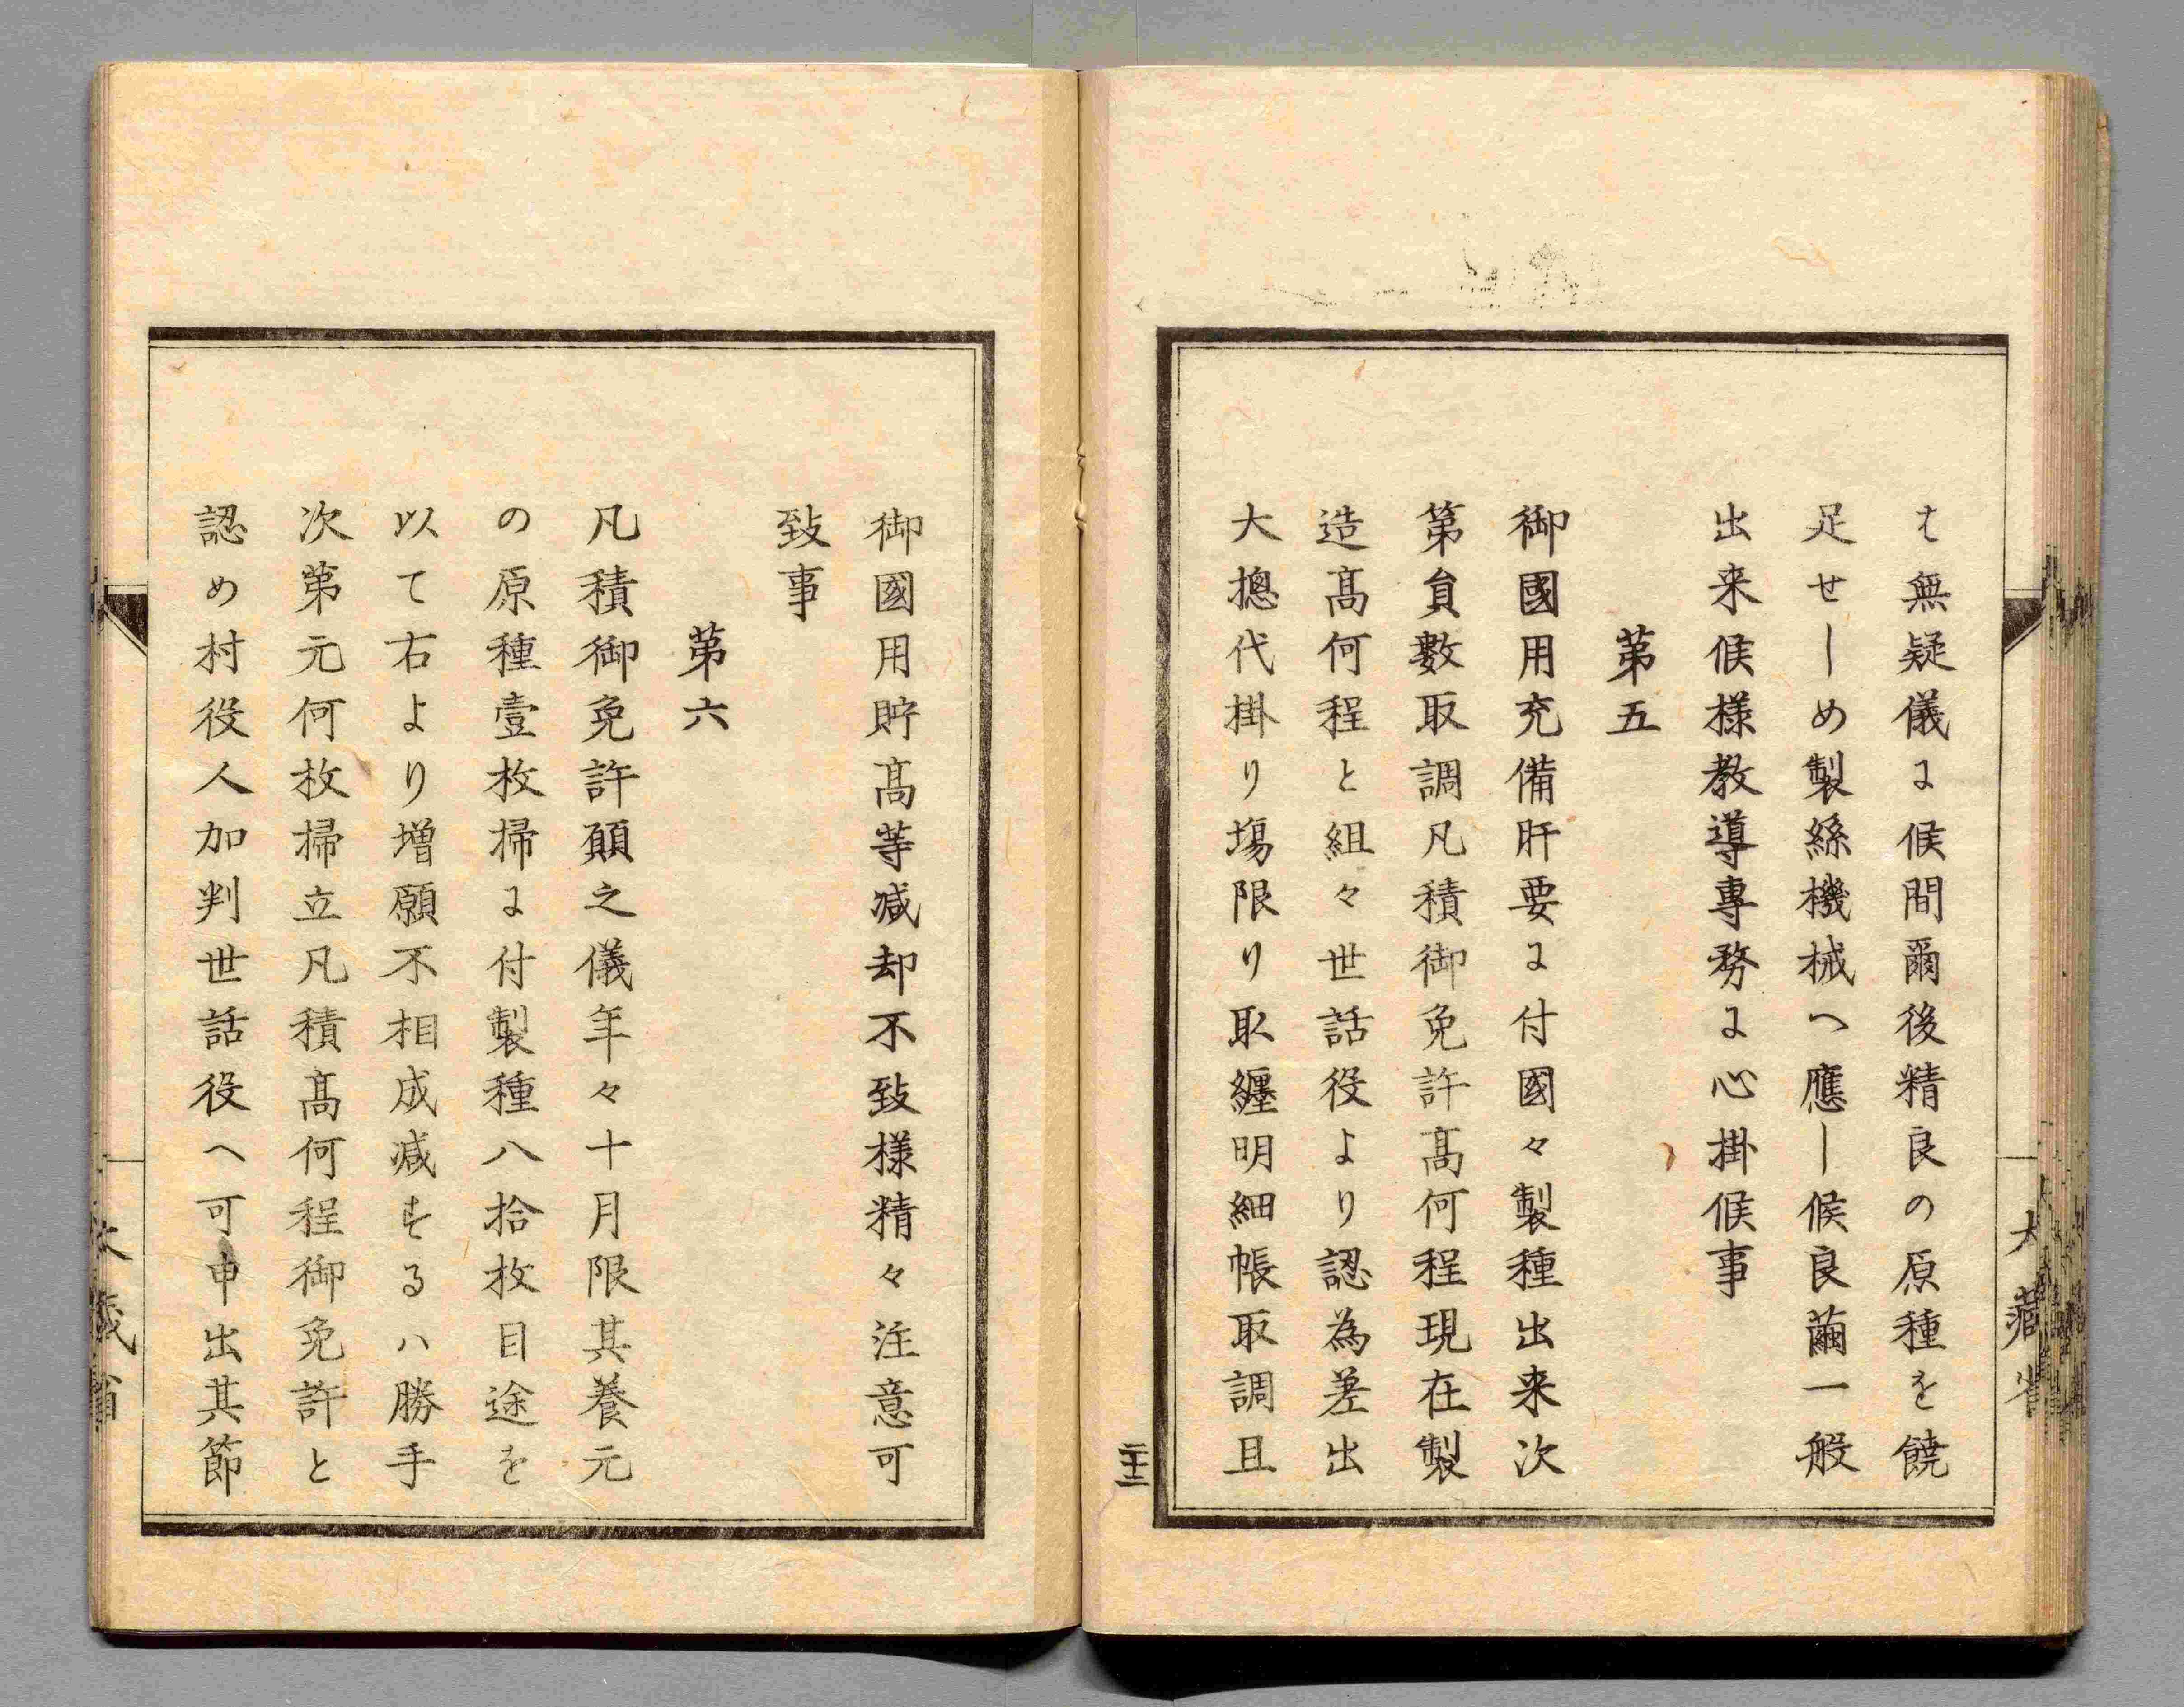 も無疑儀に候間爾後精良の原種を饒
足せしめ製絲機械へ應し候良繭一般
出来候様教導專務に心掛候事
第五
御國用充備肝要に付國々製種出来次
第員數取調凡積御免許髙何程現在製
造髙何程と組々世話役より認為差出
大摠代掛り塲限り取纒明細帳取調且
二十三
大藏省
御國用貯髙等减却不致様精々注意可
致事
第六
凡積御免許願之儀年々十月限其養元
の原種壹枚掃に付製種八拾枚目途を
以て右より増願不相成减するハ勝手
次第元何枚掃立凡積髙何程御免許と
認め村役人加判世話役へ可申出其節